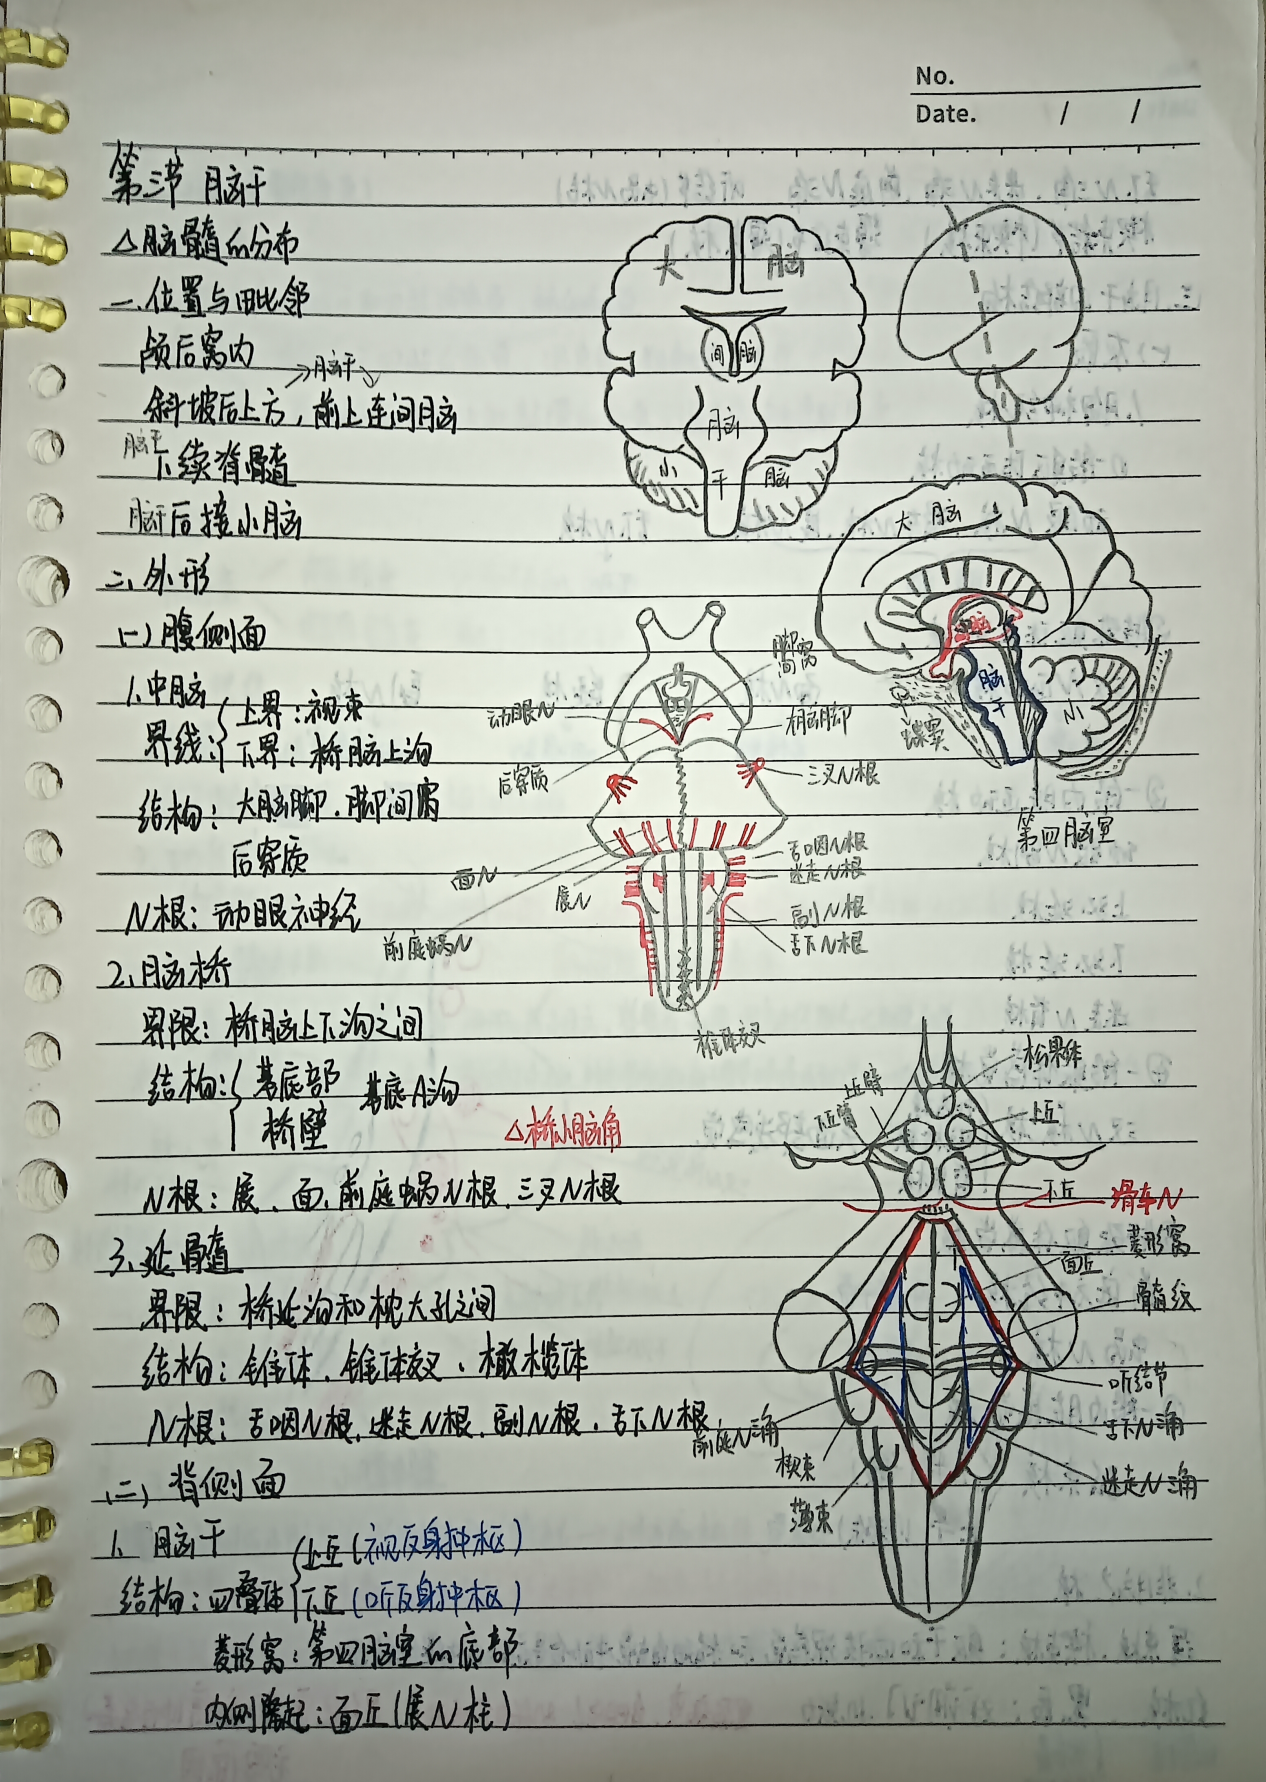 No.
Date. / /
第三节 脑干
△脑髓的分布
一.位置与毗邻
颅后窝内
脑干
斜坡后上方，前上连间脑
脑干下续脊髓
脑干后接小脑
二.外形
(一)腹侧面
1.中脑
界线: 上界：视束
下界：桥脑上沟
结构：大脑脚.脚间窝
后穿质
N根：动眼神经
2.脑桥
界限：桥脑上下沟之间
结构: 基底部 基底A沟
桥壁
△桥小脑角
N根：展、面、前庭蜗N根、三叉N根
3.延髓
界限：桥延沟和枕大孔之间
结构：锥体.锥体交叉、橄榄体
N根：舌咽N根.迷走N根.副N根.舌下N根
(二)背侧面
1.脑干
结构：四叠体 上丘(视反射中枢)
下丘(听反射中枢)
菱形窝：第四脑室的底部
内侧隆起：面丘(展N柱)
大脑
间脑
脑干
小脑
大脑
脑干
小
蝶窦
第四脑室
脚间窝
动眼N
大脑脚
后穿质
三叉N根
面N
展N
前庭蜗N
舌咽N根
迷走N根
副N根
舌下N根
锥体交叉
松果体
上丘臂
下丘臂
上丘
下丘
滑车N
菱形窝
面丘
髓纹
听结节
前庭N三角
舌下N三角
楔束
迷走N三角
薄束